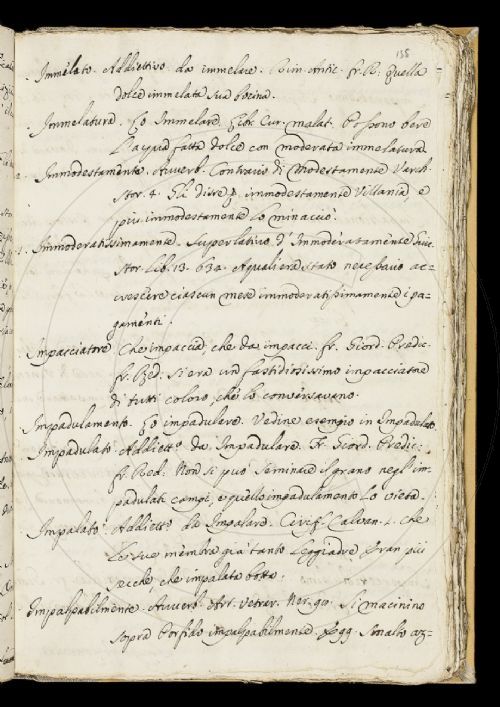 Immelato. Addiettivo da immelare. Rim. antic. fr. R. Quella
dolce immelata sua bocina.
Immelatura. Lo Immelare. Cur. malat. Possono bere
l'acqua fatta dolce con moderata immelatura.
Immodestamente. Avverb. Contrario di Modestamente Varch.
Stor. 4. immodestamente Villania e
più immodestamente lo minacciò.
Immoderatissimamente. Superlativo d'Immoderatamente
Stor. Lib. 13. 634. A quali era stato necessario ac-
crescere ciascun mese immoderatissimamente i pa-
gamenti.
Impacciatore Che impaccia, che da impacci. fr. Giord. Predic.
fr. Red. Si era un fastidiosissimo impacciatore
di tutti coloro, che lo conversavano.
Impadulamento. Lo impadulare. Vedine esempio in Impadulato.
Impadulato. Addiett.º da Impadulare. Fr. Giord. Predic.
fr. Red. Non si può seminare il grano negl'im-
padulati campi, e quello impadulamento lo vieta.
Impalato. Addiett.º da Impalare. Calvan. 1. che
le sue membra già tanto leggiadre, eran più
secche, che impalata botta.
Impalpabilmente. Avverb. Art. Vetrar. Ner. 90. Si macinino
sopra Porfido impalpabilmente. Smalto az-